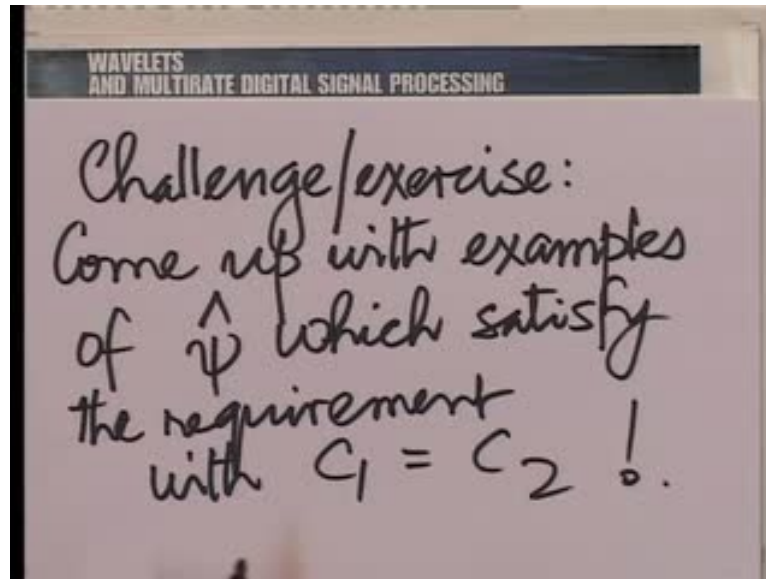 WAVELETS
AND MULTIRATE DIGITAL SIGNAL PROCESSING
Challenge/exercise:
Come up with examples
of ψ̂ which satisfy
the requirement
with C₁ = C₂ !.